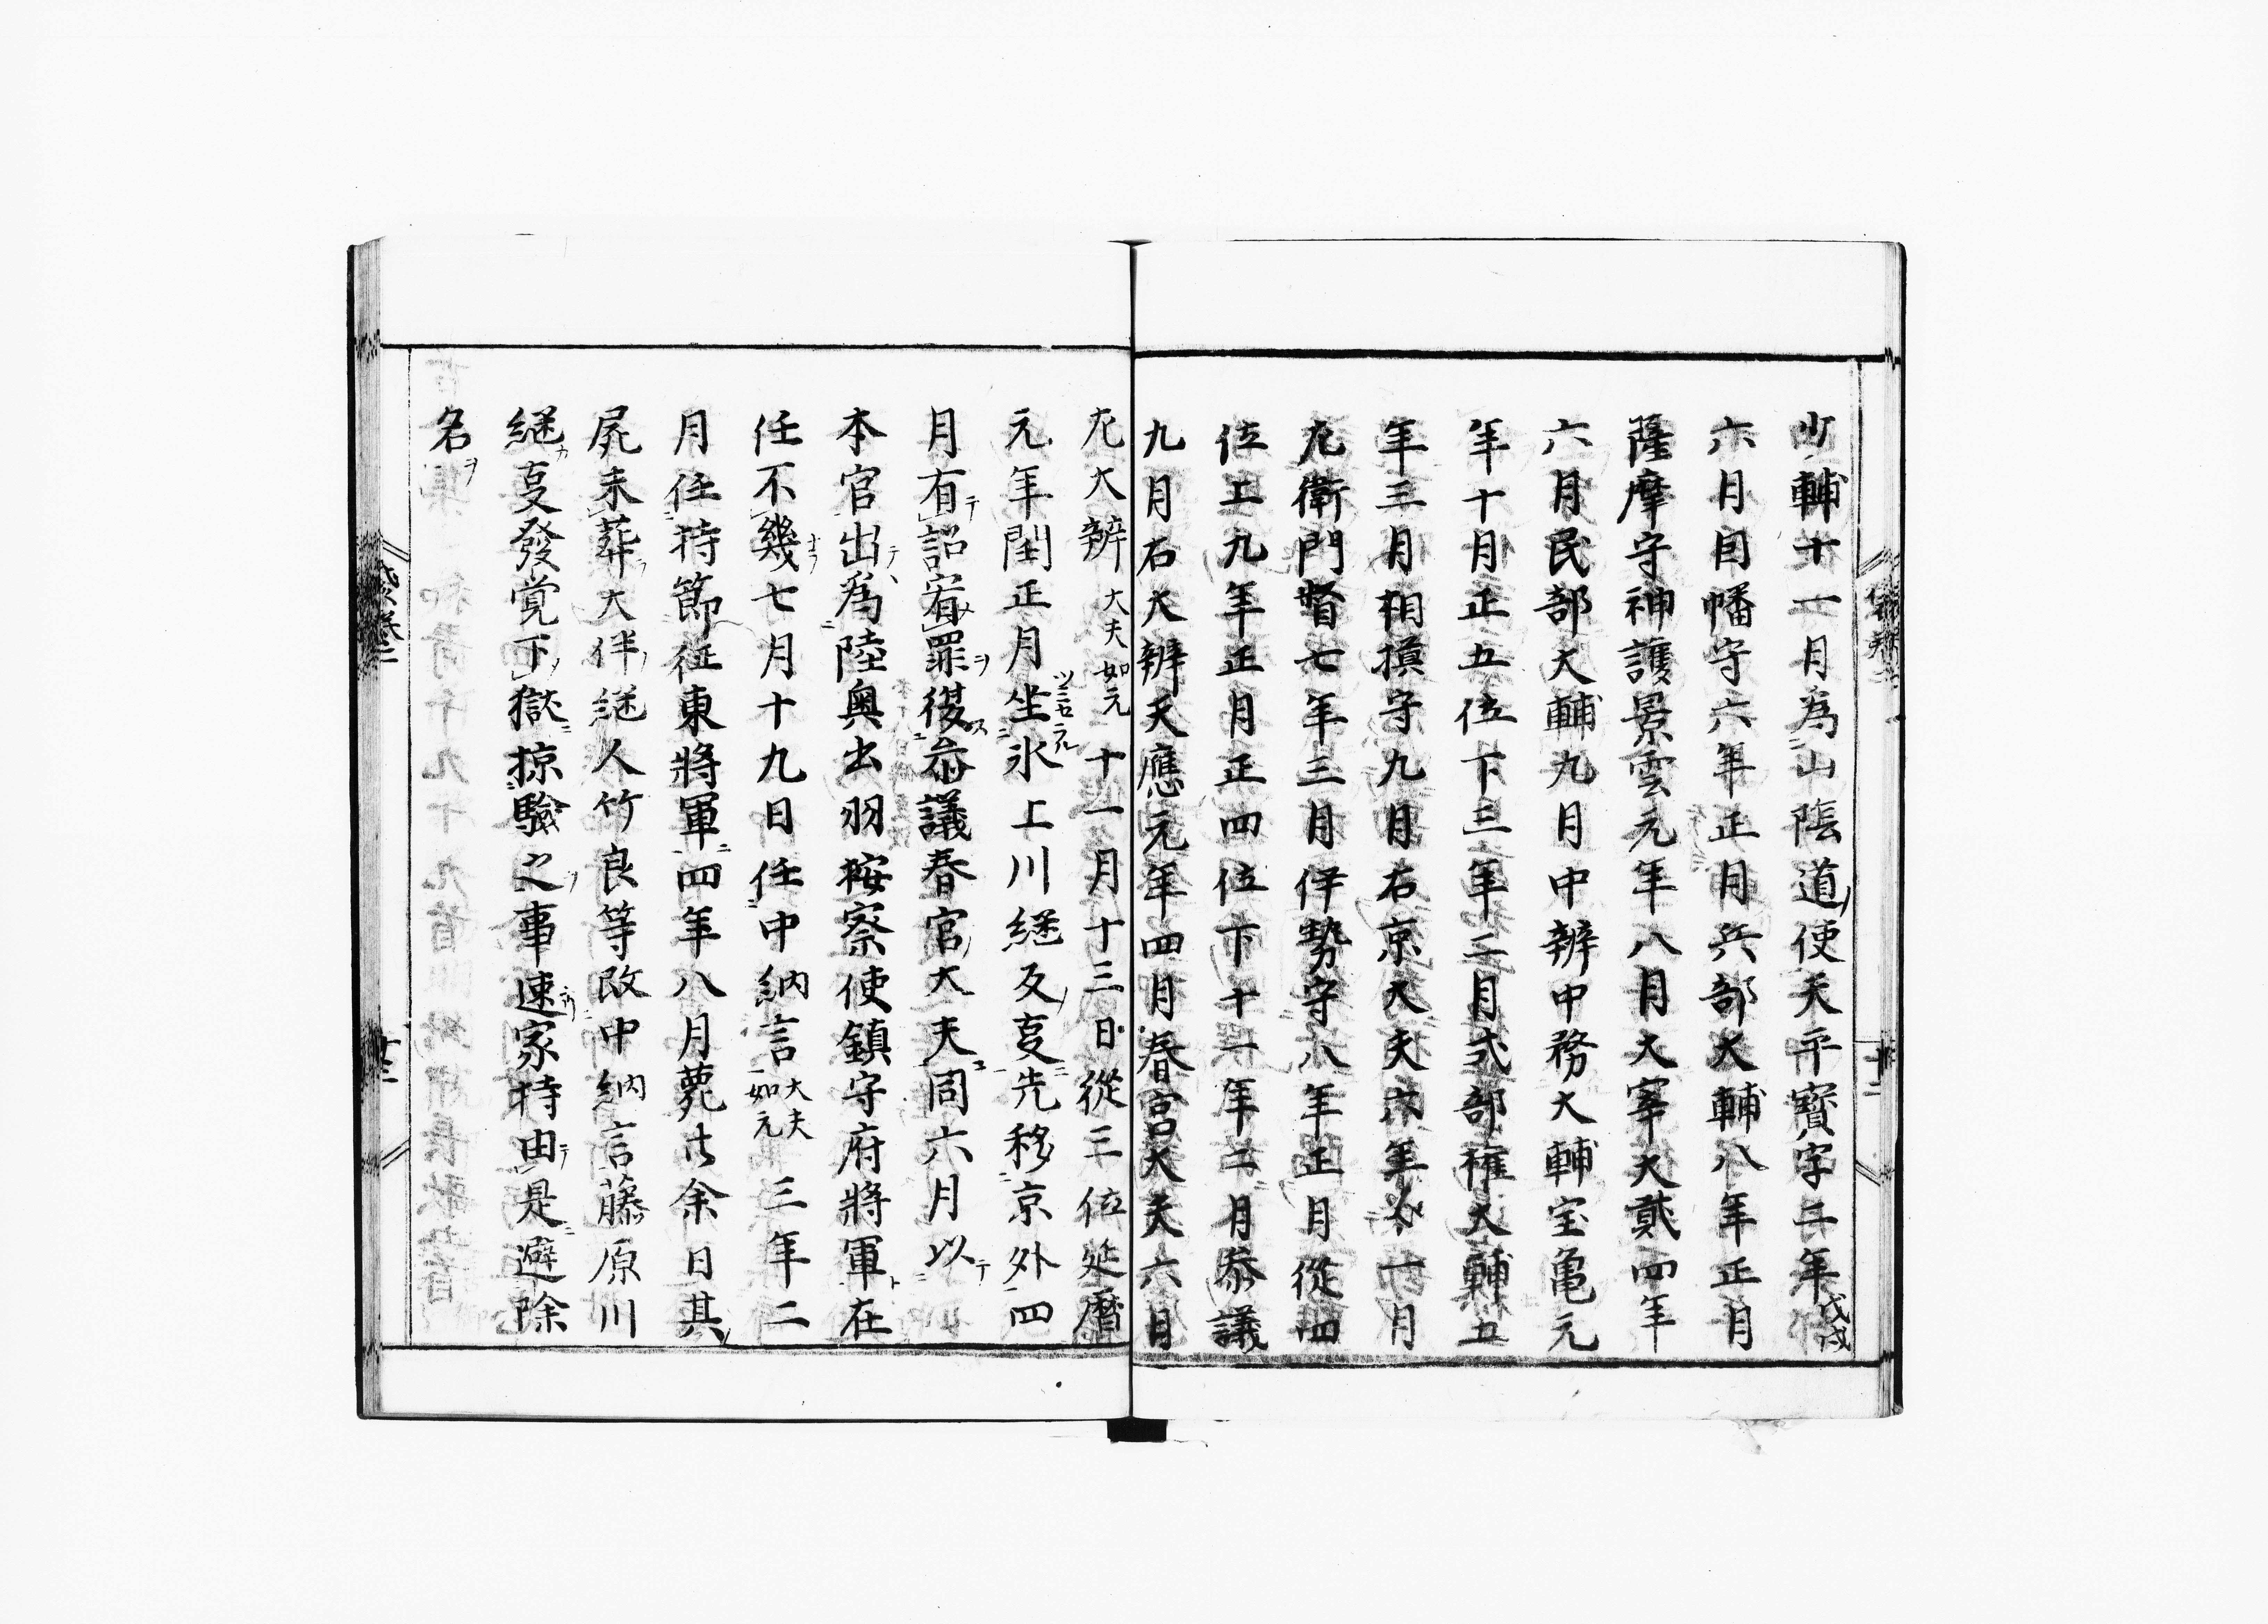 少輔十一月為山陰道使天平寳字二年戊戌
六月因幡守六年正月兵部大輔八年正月
薩摩守神護景雲元年八月大宰大貳四年
六月民部大輔九月中辨中務大輔宝亀元
年十月正五位下三年二月式部権大輔五
年三月相摸守九月右京大夫六年十一月
九衛門督七年三月伊勢守八年正月從四
位上九年正月正四位下十一年二月叅議
九月右大辨天應元年四月春宮大夫六月
左大辨大夫如元十一月十三日從三位延暦
元年閏正月坐氷上川継反㕝先移京外四
月有詔宥罪復叅議春官大夫同六月以
本官出為陸奥出羽按察使鎮守府將軍在
任不幾七月十九日任中納言大夫如元三年二
月任持節征東將軍四年八月薨廿余日其
屍未葬大伴継人竹良等改中納言藤原川
継㕝發覚下獄掠驗之事速家持由是避除
名